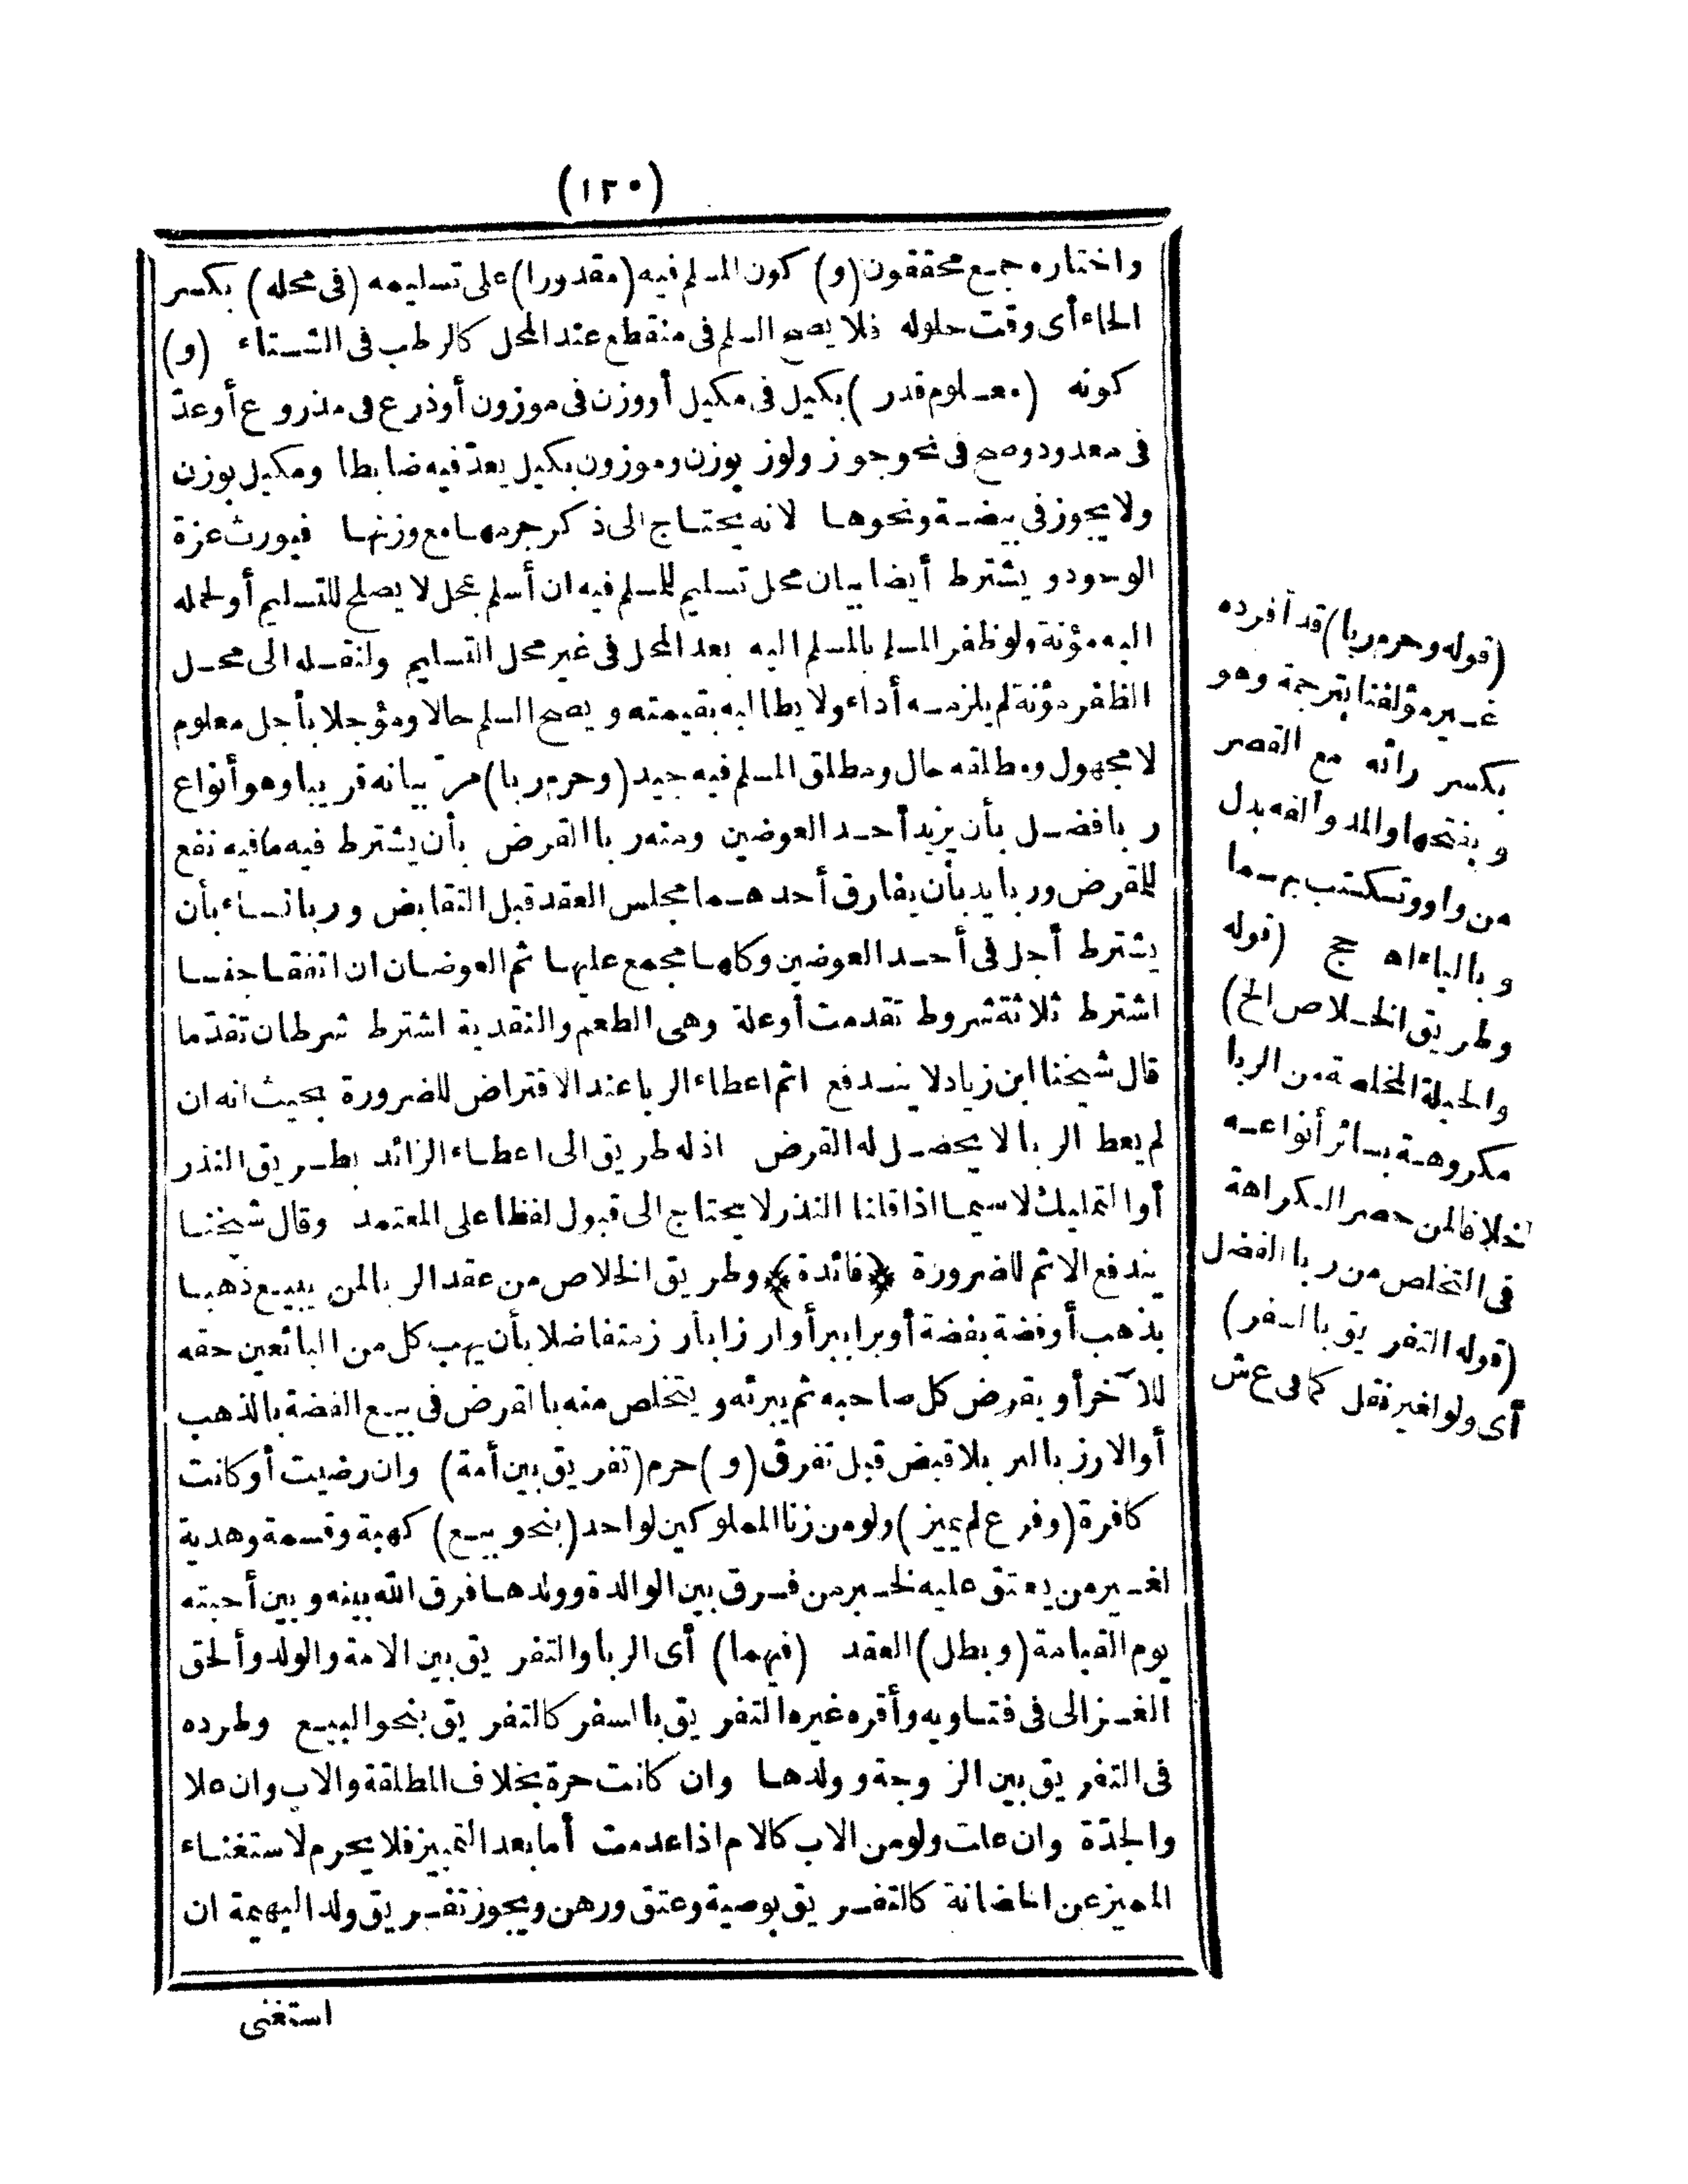 (١٢٠)
واختاره جمع محققون (و) كون المسلم فيه (مقدورا) على تسليمه (فى محله) بكسر
الحاء أى وقت حلوله فلا يصح السلم فى منقطع عند المحل كالرطب فى الشتاء (و)
كونه (معلوم قدر) بكيل فى مكيل أو وزن فى موزون أو ذرع فى مذروع أو عد
فى معدود وصح فى نحو جوز ولوز بوزن وموزون بكيل يعد فيه ضابطا ومكيل بوزن
ولا يجوز فى بيضة ونحوها لانه يحتاج الى ذكر جرمها مع وزنها فيورث عزة
الوجود و يشترط أيضا بيان محل تسليم للمسلم فيه ان أسلم بمحل لا يصلح للتسليم أو لحمله
اليه مؤنة ولو ظفر المسلم بالمسلم اليه بعد المحل فى غير محل التسليم ولنقله الى محل
الظفر مؤنة لم يلزمه أداء ولا يطالبه بقيمته و يصح السلم حالا ومؤجلا بأجل معلوم
لا مجهول ومطلقه حال ومطلق المسلم فيه جيد (وحرم ربا) مرّ بيانه قريبا وهو أنواع
ربا فضل بأن يزيد أحد العوضين ومنه ربا القرض بأن يشترط فيه ما فيه نفع
للمقرض وربا يد بأن يفارق أحدهما مجلس العقد قبل التقابض وربا نساء بأن
يشترط أجل فى أحد العوضين وكلها مجمع عليها ثم العوضان ان اتفقا جنسا
اشترط ثلاثة شروط تقدمت أو علة وهى الطعم والنقدية اشترط شرطان تقدّما
قال شيخنا ابن زياد لا يندفع اثم اعطاء الربا عند الاقتراض للضرورة بحيث انه ان
لم يعط الربا لا يحصل له القرض اذ له طريق الى اعطاء الزائد بطريق النذر
أو التمليك لا سيما اذا قلنا النذر لا يحتاج الى قبول لفظا على المعتمد وقال شيخنا
يندفع الاثم للضرورة ﴿فائدة﴾ وطريق الخلاص من عقد الربا لمن يبيع ذهبا
بذهب أو فضة بفضة أو برا ببر أو ارزا بأرز متفاضلا بأن يهب كل من البائعين حقه
للآخر أو يقرض كل صاحبه ثم يبرئه و يتخلص منه بالقرض فى بيع الفضة بالذهب
أو الارز بالبر بلا قبض قبل تفرق (و) حرم (تفريق بين أمة) وان رضيت أو كانت
كافرة (وفرع لم يميز) ولو من زنا المملوكين لواحد (بنحو بيع) كهبة وقسمة وهدية
لغير من يعتق عليه لخبر من فرق بين الوالدة وولدها فرق الله بينه و بين أحبته
يوم القيامة (و بطل) العقد (فيهما) أى الربا والتفريق بين الامة والولد وألحق
الغزالى فى فتاويه وأقره غيره التفريق بالسفر كالتفريق بنحو البيع وطرده
فى التفريق بين الزوجة وولدها وان كانت حرة بخلاف المطلقة والاب وان علا
والجدّة وان علت ولو من الاب كالام اذا عدمت أما بعد التمييز فلا يحرم لاستغناء
المميز عن الحضانة كالتفريق بوصية وعتق ورهن ويجوز تفريق ولد البهيمة ان
استغنى
(قوله وحرم ربا) قد أفرده
غير مؤلفنا بترجمة وهو
بكسر رائه مع القصر
و بفتحها والمد وألفه بدل
من واو وتكتب بهما
و بالياء اه حج (قوله
وطريق الخلاص الخ)
والحيلة المخلصة من الربا
مكروهة بسائر أنواعه
خلافا لمن حصر الكراهة
فى التخلص من ربا الفضل
(قوله التفريق بالسفر)
أى ولو لغير نقل كما فى ع ش